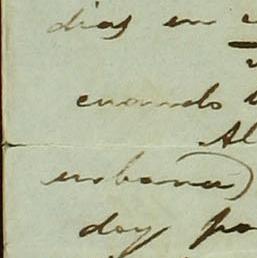 dias en
cuando
Al
urbana)
doy pa